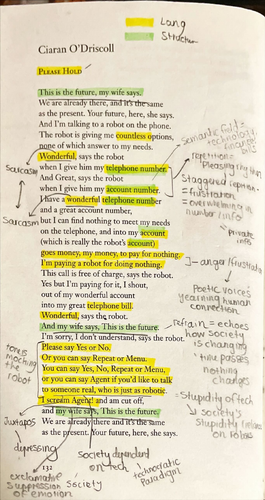 Lang
Structure
Ciaran O'Driscoll
PLEASE HOLD
This is the future, my wife says.
We are already there, and it's the same
as the present. Your future, here, she says.
And I'm talking to a robot on the phone.
The robot is giving me countless options,
none of which answer to my needs.
Wonderful, says the robot
when I give him my telephone number.
And Great, says the robot
when I give him my account number.
I have a wonderful telephone number
and a great account number,
but I can find nothing to meet my needs
on the telephone, and into my account
(which is really the robot's account)
goes money, my money, to pay for nothing.
I'm paying a robot for doing nothing.
This call is free of charge, says the robot.
Yes but I'm paying for it, I shout,
out of my wonderful account
into my great telephone bill.
Wonderful, says the robot.
And my wife says, This is the future.
I'm sorry, I don't understand, says the robot.
Please say Yes or No.
Or you can say Repeat or Menu.
You can say Yes, No, Repeat or Menu,
or you can say Agent if you'd like to talk
to someone real, who is just as robotic.
I scream Agent! and am cut off,
and my wife says, This is the future.
We are already there and it's the same
as the present. Your future, here, she says.
132
Sarcasm
Sarcasm
tone is
mocking
the robot
Juxtapos
depressing
exclamative
suppression
of emotion
society
Society dependant
on tech
technocratic
paradigm
Semantic field =
technology,
finance
repetition =
Pleasing rhythm
Staggered repetition
= frustration
= overwhelming
number/info
private
info
anger/frustration
Poetic voice's
yearning human
connection.
refrain = echoes
how society
is changing
time passes
nothing
changes
= Stupidity of tech
society's
stupidity
on robots